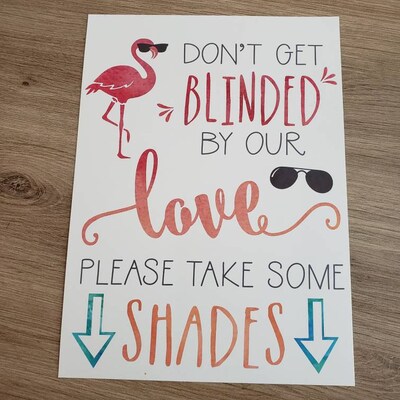 DON'T GET
BLINDED
BY OUR
love
PLEASE TAKE SOME
SHADES